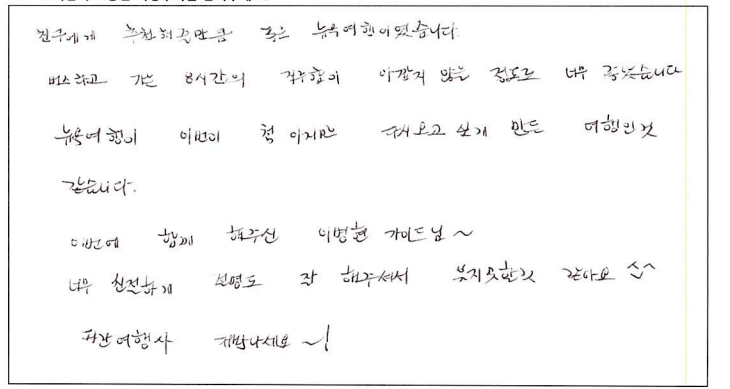 친구에게 추천해줄만큼 좋은 뉴욕여행이였습니다.
버스타고 가는 8시간의 지루함이 아깝지 않은 정도로 너무 좋았습니다
뉴욕여행이 이번이 첫 이지만 다시 오고 싶게 만든 여행인것
같습니다.
이번에 함께 해주신 이병현 가이드님 ~
너무 친절하게 설명도 잘 해주셔서 같아요 ^^
여행사 대박나세요 ~!